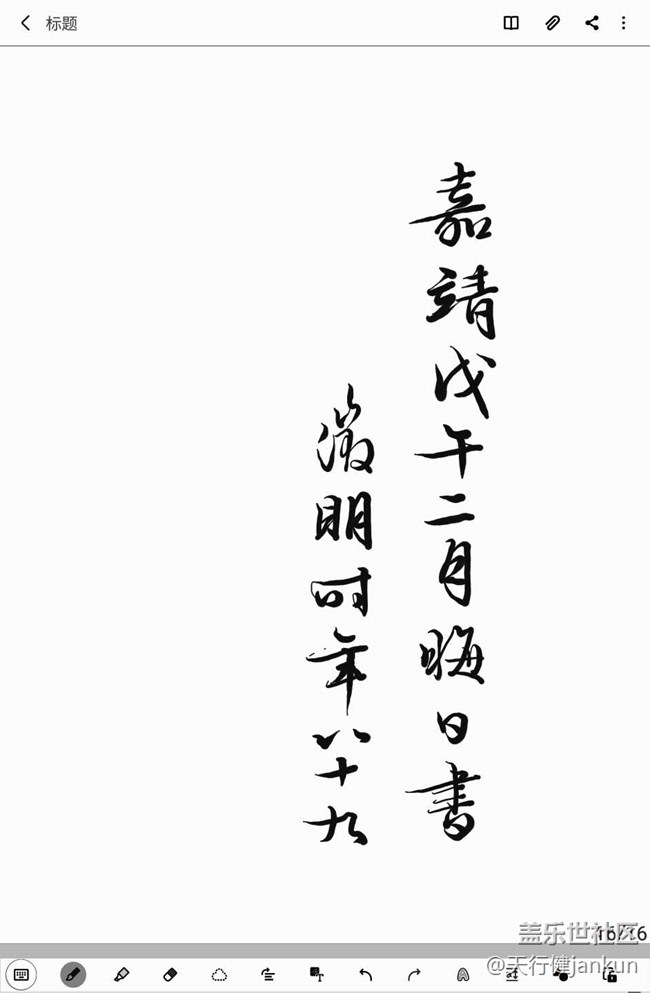 标题
嘉靖戊午二月晦日书
徵明时年八十九
16/16
盖乐世社区
@天行健jankun